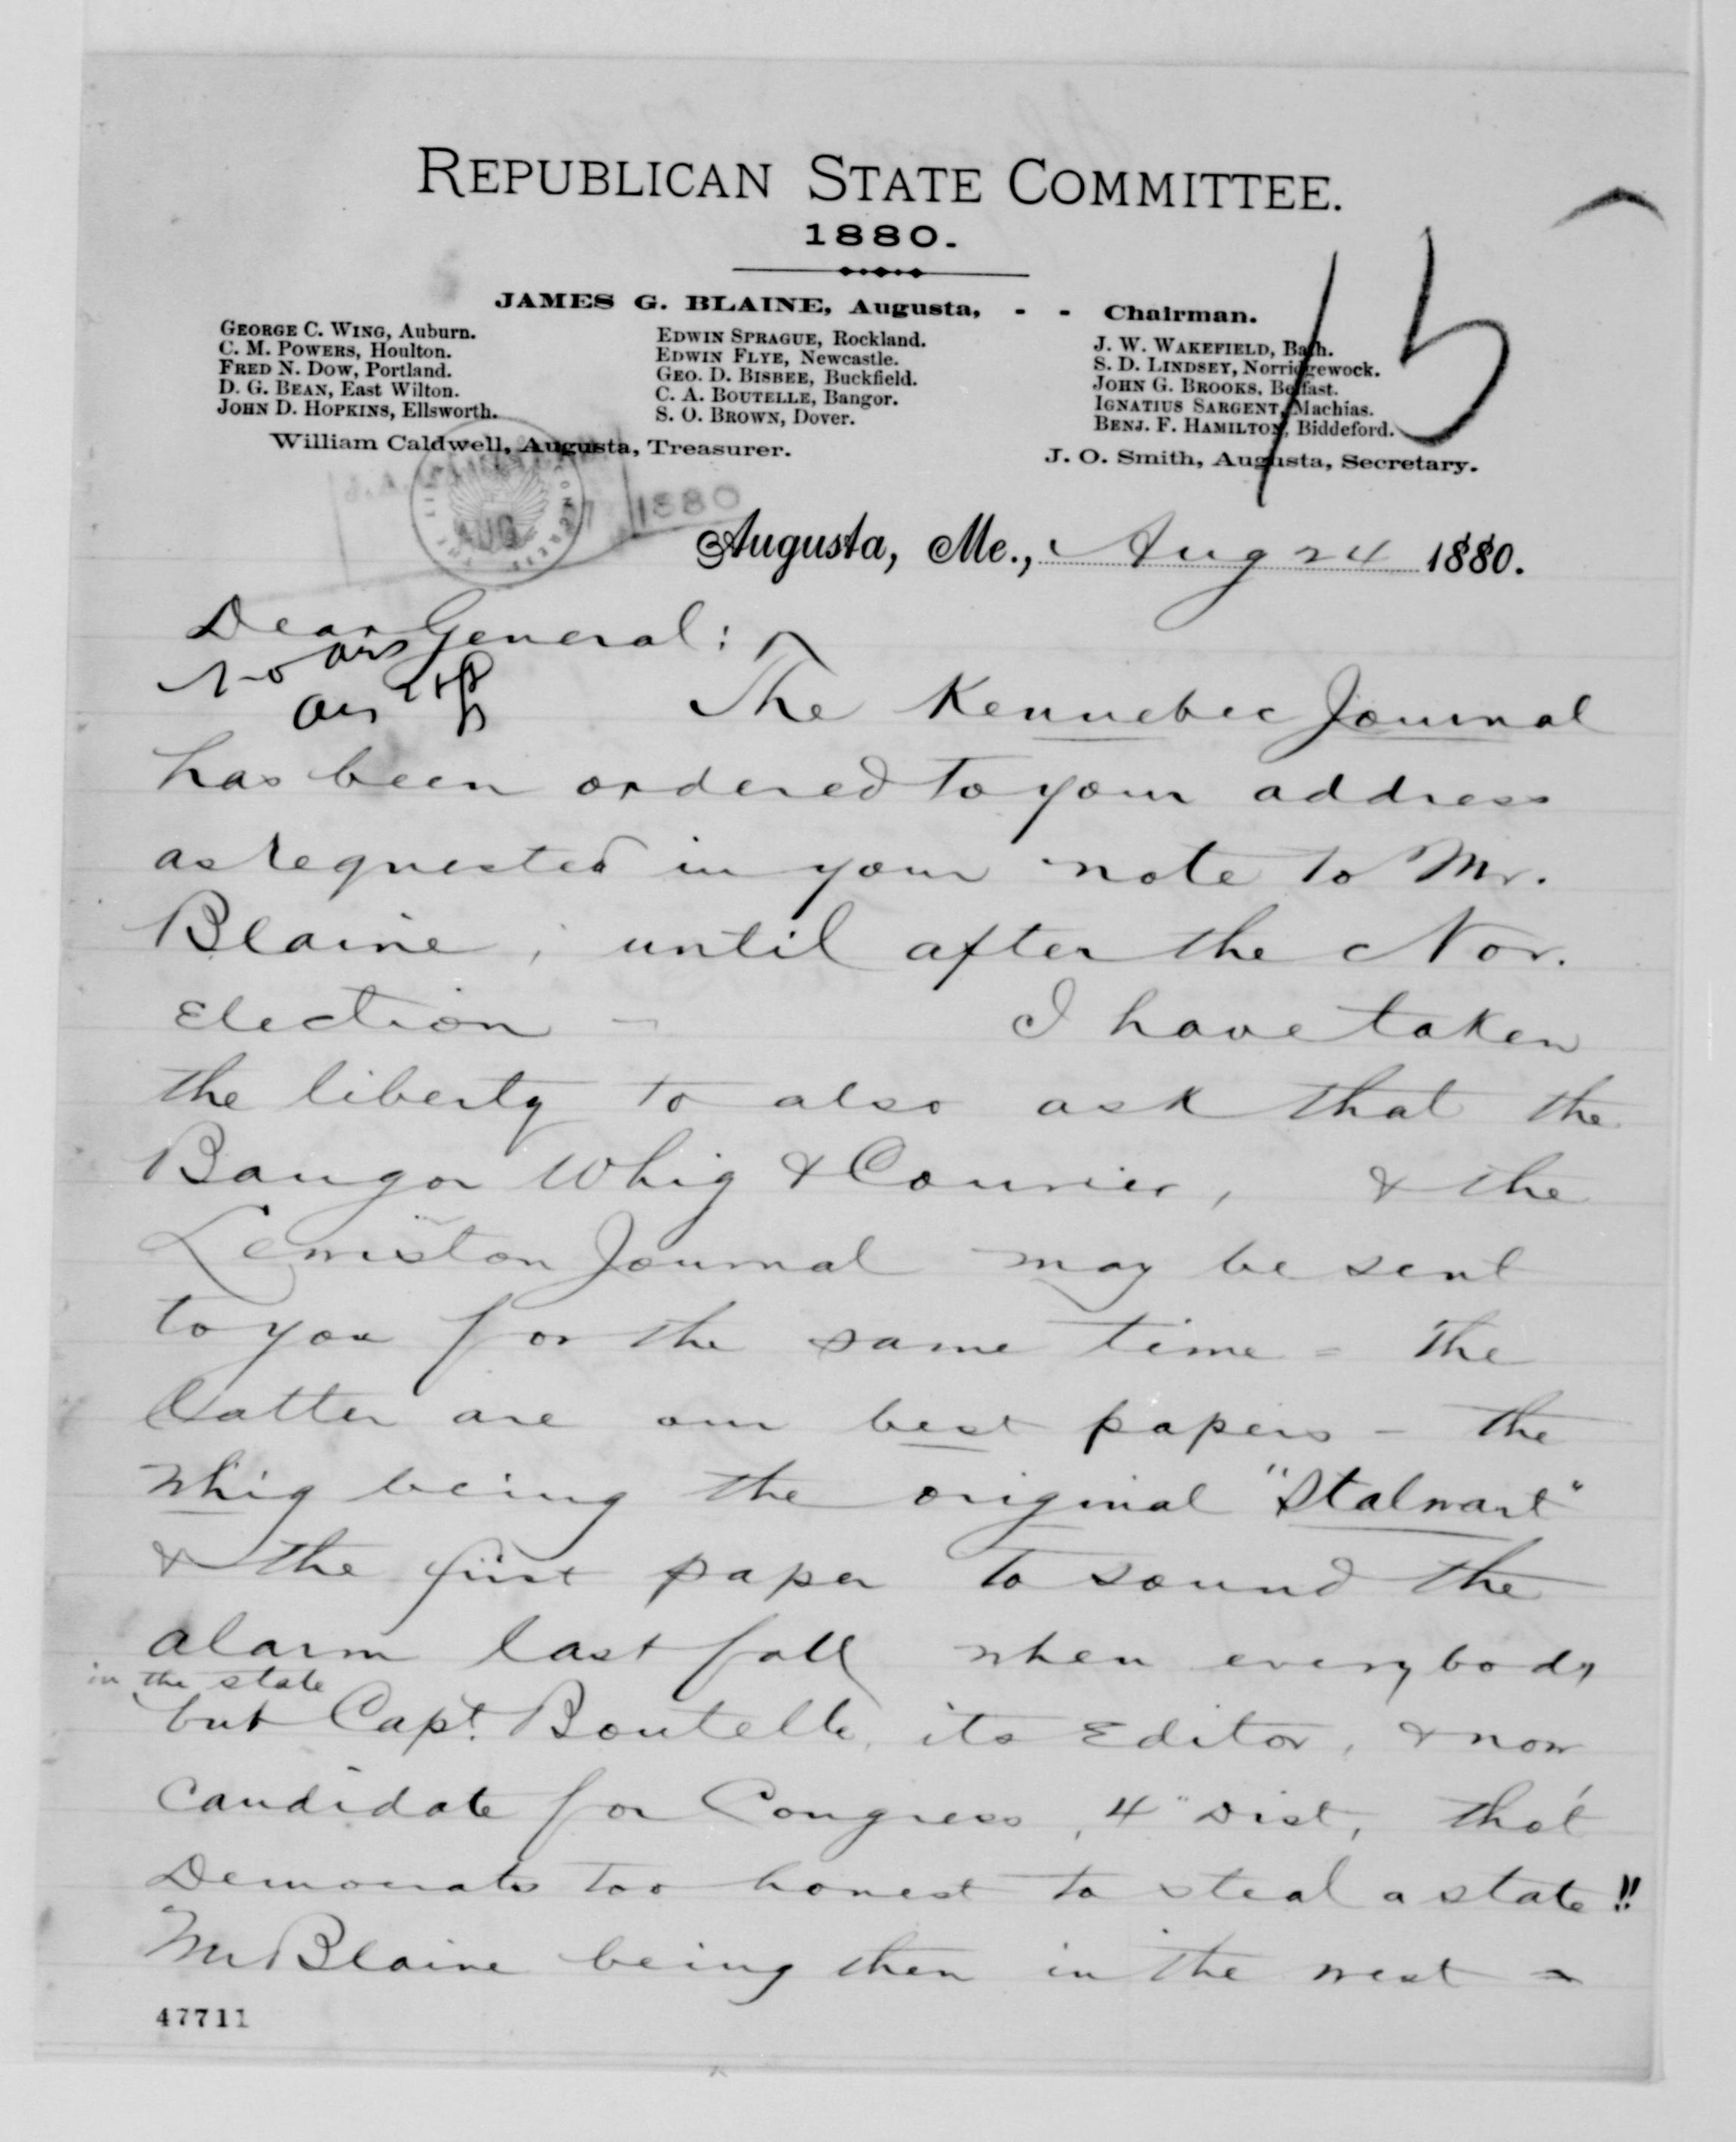 REPUBLICAN STATE COMMITTEE.
1880.
JAMES G. BLAINE, Augusta, - - Chairman.
GEORGE C. WING, Auburn.
C. M. POWERS, Houlton.
FRED N. DOW, Portland.
D. G. BEAN, East Wilton.
JOHN D. HOPKINS, Ellsworth.
EDWIN SPRAGUE, Rockland.
EDWIN FLYE, Newcastle.
GEO. D. BISBEE, Buckfield.
C. A. BOUTELLE, Bangor.
S. O. BROWN, Dover.
J. W. WAKEFIELD, Bath.
S. D. LINDSEY, Norridgewock.
JOHN G. BROOKS, Belfast.
IGNATIUS SARGENT, Machias.
BENJ. F. HAMILTON, Biddeford.
William Caldwell, Augusta, Treasurer.
J. O. Smith, Augusta, Secretary.
AUG 1880
Augusta, Me., Aug 24 1880.
Dear General:
No ans
The Kennebec Journal
has been ordered to your address
as requested in your note to Mr.
Blaine, until after the Nov.
Election - I have taken
the liberty to also ask that the
Bangor Whig & Courier, & the
Lewiston Journal may be sent
to you for the same time - The
latter are our best papers - the
Whig being the original "Stalwart"
& the first paper to sound the
alarm last fall when everybody
in the state
but Capt. Boutelle, its Editor, & now
candidate for Congress, 4" Dist, tho't
Democrats too honest to steal a state!!
Mr Blaine being then in the west -
47711